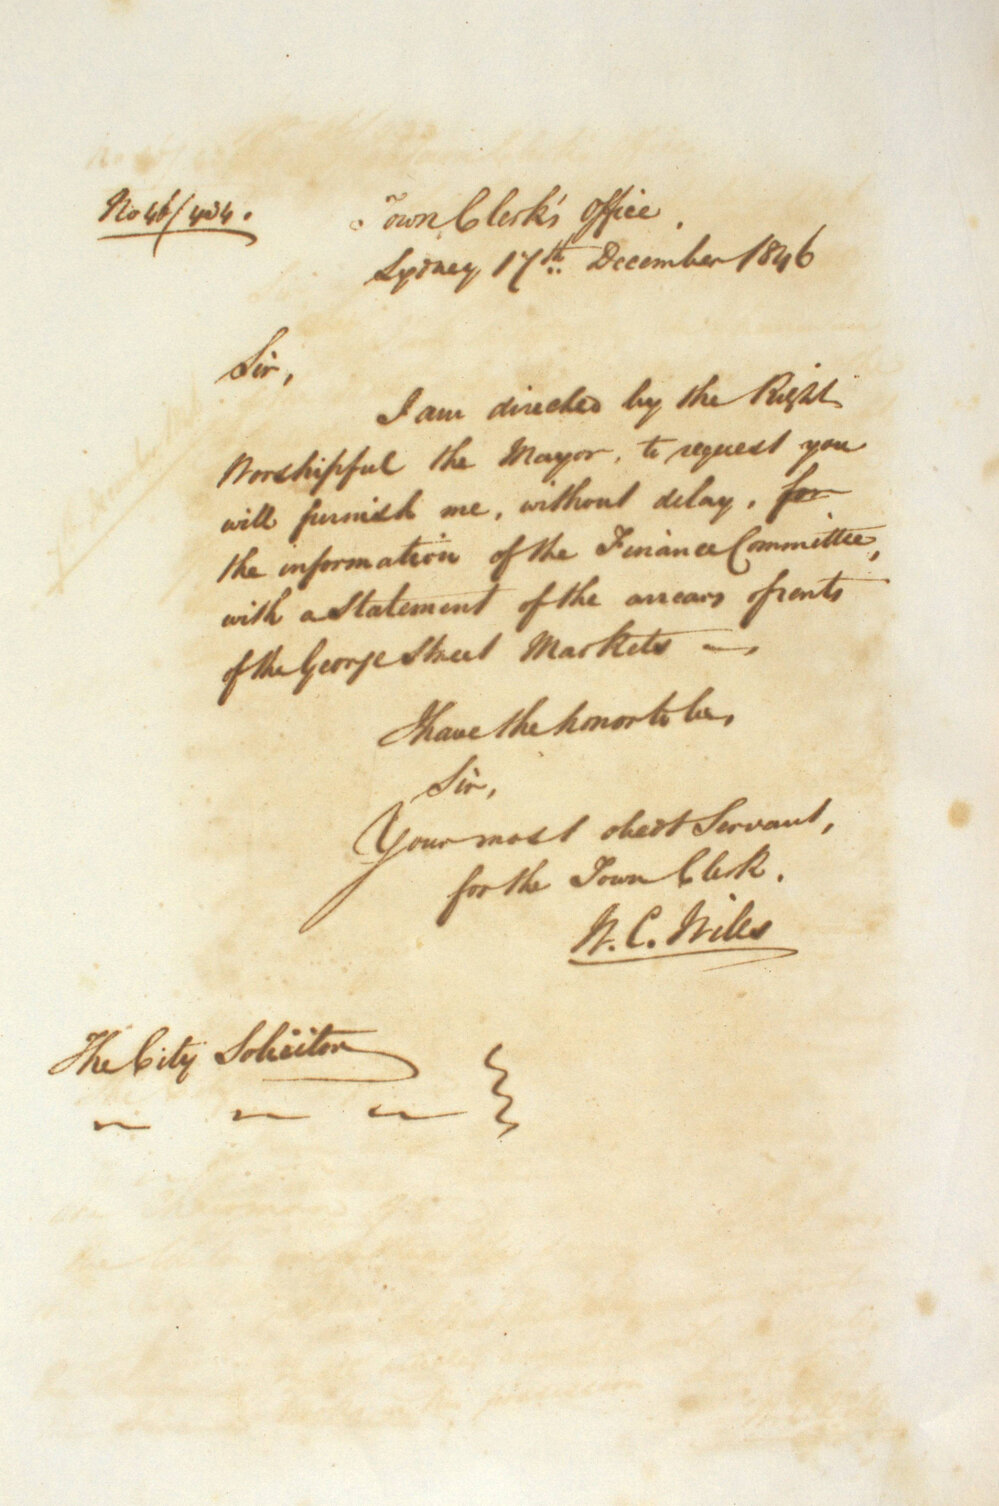 No 46/434.
Town Clerk's Office,
Sydney 17th. December 1846
Sir,
I am directed by the Right
Worshipful the Mayor, to request you
will furnish me, without delay, for
the information of the Finance Committee,
with a Statement of the arrears of rents
of the George Street Markets —,
I have the honor to be,
Sir,
Your most obedt Servant,
for the Town Clerk.
W. C. Wills
The City Solicitor